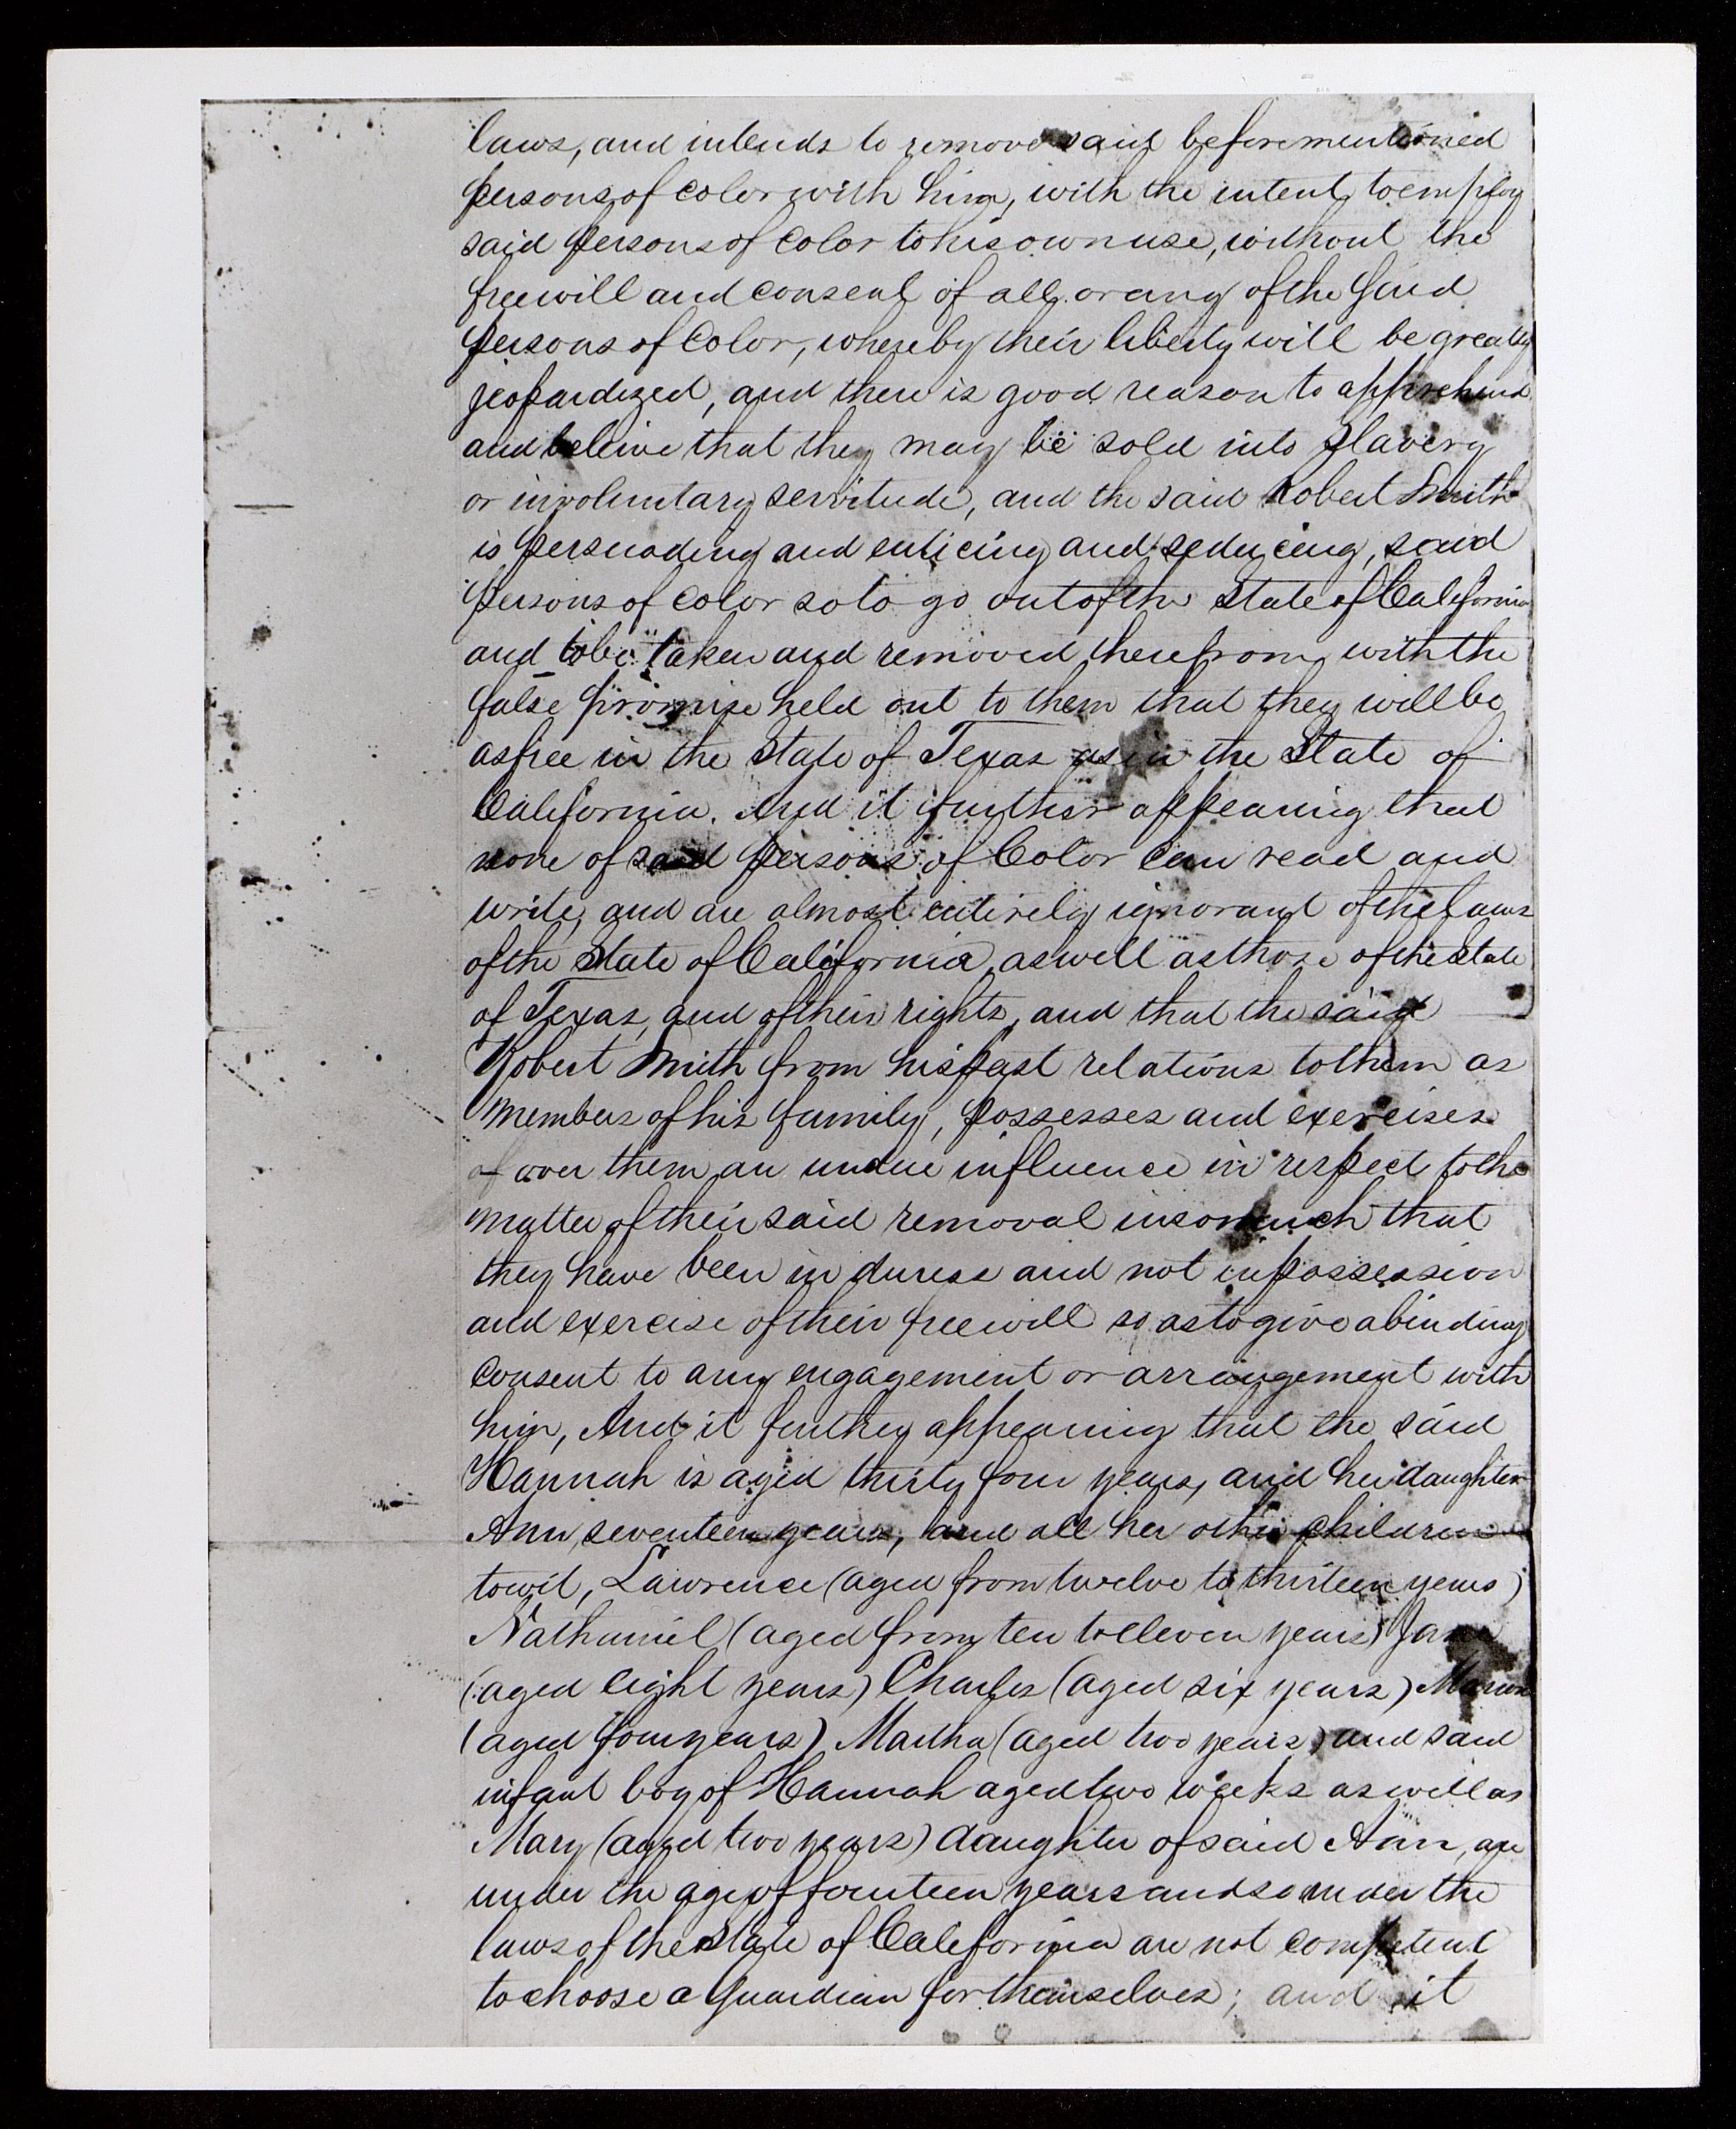 laws, and intends to remove said beforementioned
persons of color with him, with the intent to employ
said persons of Color to his own use, without the
freewill and consent of all or any of the said
persons of Color, whereby their liberty will be greatly
jeopardized, and there is good reason to apprehend
and beleive that they may be sold into slavery
or involuntary servitude, and the said Robert Smith
is persuading and enticing and seducing, said
persons of color so to go out of the State of California
and to be taken and removed therefrom, with the
false promise held out to them that they will be
as free in the State of Texas as in the State of
California. And it further appearing that
none of said persons of Color can read and
write, and are almost entirely ignorant of the laws
of the State of California, as well as those of the State
of Texas, and of their rights, and that the said
Robert Smith from his past relations to them as
members of his family, possesses and exercises
of over them an undue influence in respect to the
matter of their said removal insomuch that
they have been in duress and not in possession
and exercise of their freewill so as to give a binding
consent to any engagement or arrangement with
him, And it further appearing that the said
Hannah is aged thirty four years, and her daughter
Ann, seventeen years, and all her other children
towit, Lawrence (aged from twelve to thirteen years)
Nathaniel (aged from ten to eleven years) Jane
(aged eight years) Charles (aged six years) Marion
(aged four years) Martha (aged two years) and said
infant boy of Hannah aged two weeks as well as
Mary (aged two years) daughter of said Ann, are
under the age of fourteen years and so under the
laws of the State of California are not competent
to choose a Guardian for themselves; and it